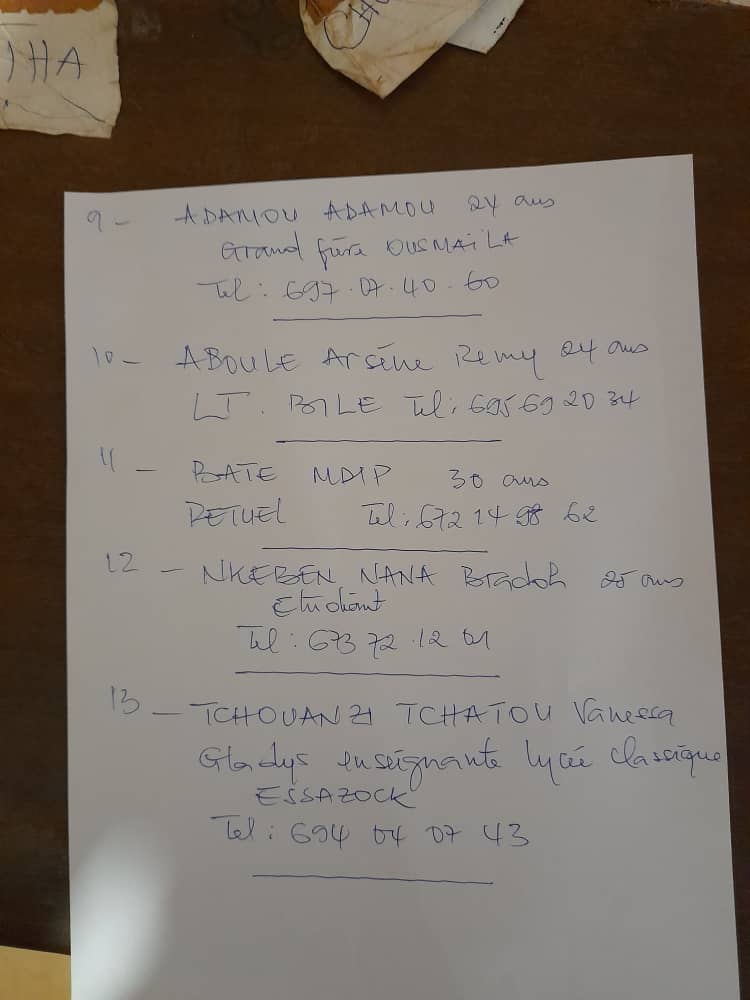 HA
9 - ADAMOU ADAMOU 24 ans
Grand frère OUSMAILA
Tel : 697.07.40.60
10 - ABOULE Arsène Remy 24 ans
LT. BILE Tel : 695 69 20 34
11 - BATE MDIP 30 ans
RETUEL Tel : 672 14 98 62
12 - NKEBEN NANA Bradoh 25 ans
Etudiant
Tel : 673 72.12 01
13 - TCHOUANZI TCHATOU Vanessa
Gladys enseignante lycée classique
ESSAZOCK
Tel : 694 04 07 43